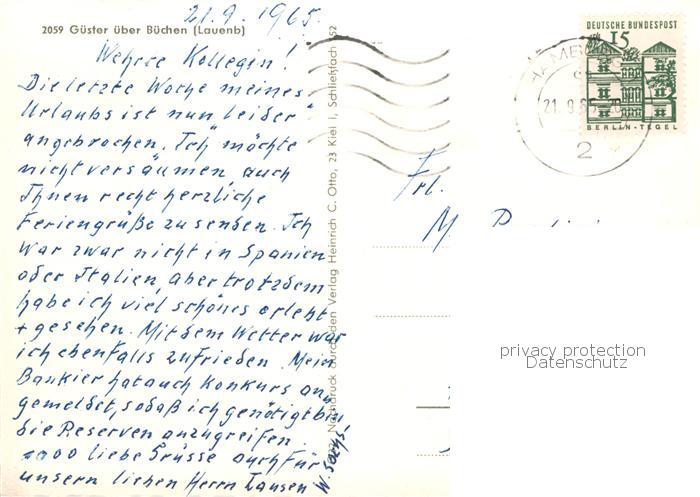 21.9.1965
2059 Güster über Büchen (Lauenb)
Wehrte Kollegin!
Die letzte Woche meines
Urlaubs ist nun leider
angebrochen. Ich möchte
nicht versäumen, auch
Ihnen recht herzliche
Feriengrüße zu senden. Ich
war zwar nicht in Spanien
oder Italien, aber trotzdem
habe ich viel schönes erlebt
+ gesehen. Mit dem Wetter war
ich ebenfalls zufrieden. Mein
Bankier hat auch Konkurs an
gemeldet, sodaß ich genötigt bin
die Reserven anzugreifen.
1000 liebe Grüsse auch für
unsern lieben Herrn Jansen
Nachdruck durch den Verlag Heinrich C. Otto, 23 Kiel 1, Schließfach 52
DEUTSCHE BUNDESPOST
15
BERLIN-TEGEL
HAMBURG
21.9.6
2
Frl.
M. D
privacy protection
Datenschutz